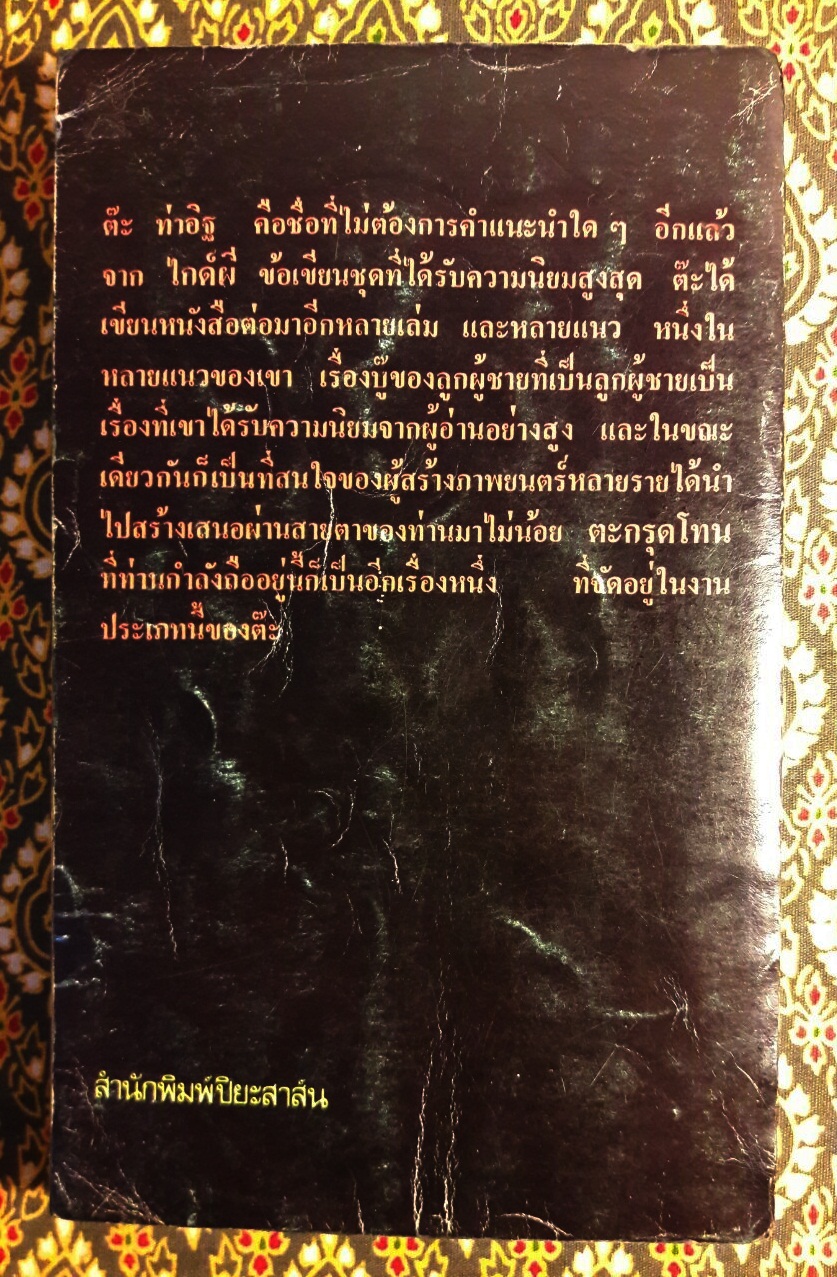 ต๊ะ ท่าอิฐ คือชื่อที่ไม่ต้องการคำแนะนำใด ๆ อีกแล้ว
จาก ไกด์ผี ข้อเขียนชุดที่ได้รับความนิยมสูงสุด ต๊ะได้
เขียนหนังสือต่อมาอีกหลายเล่ม และหลายแนว หนึ่งใน
หลายแนวของเขา เรื่องบู๊ของลูกผู้ชายที่เป็นลูกผู้ชายเป็น
เรื่องที่เขาได้รับความนิยมจากผู้อ่านอย่างสูง และในขณะ
เดียวกันก็เป็นที่สนใจของผู้สร้างภาพยนตร์หลายรายได้นำ
ไปสร้างเสนอผ่านสายตาของท่านมาไม่น้อย ตะกรุดโทน
ที่ท่านกำลังถืออยู่นี้ก็เป็นอีกเรื่องหนึ่ง ที่จัดอยู่ในงาน
ประเภทนี้ของต๊ะ
สำนักพิมพ์ปิยะสาส์น